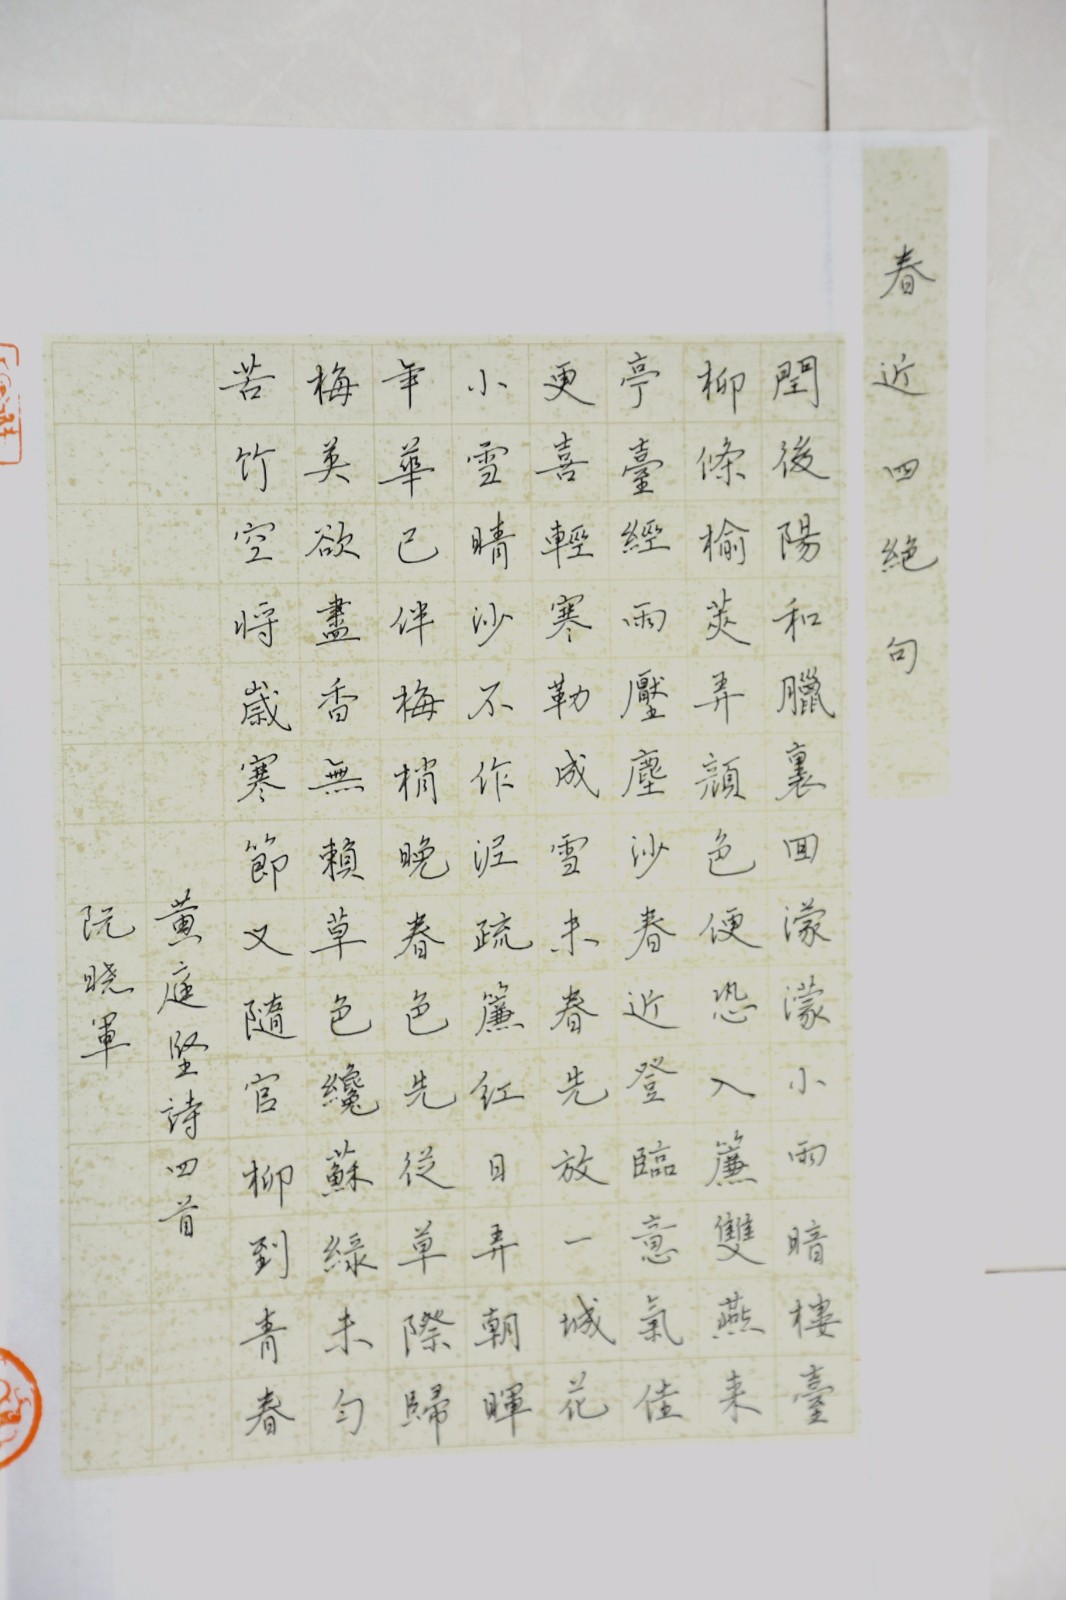 春近四絕句
閏後陽和臘裏回濛濛小雨暗樓臺
柳條榆莢弄顏色便恐入簾雙燕来
亭臺經雨壓塵沙春近登臨意氣佳
更喜輕寒勒成雪未春先放一城花
小雪晴沙不作泥疏簾红日弄朝暉
年華已伴梅梢晚春色先從草際歸
梅英欲盡香無賴草色纔蘇綠未勻
苦竹空将歲寒節又隨官柳到青春
黄庭堅詩四首
阮晓軍